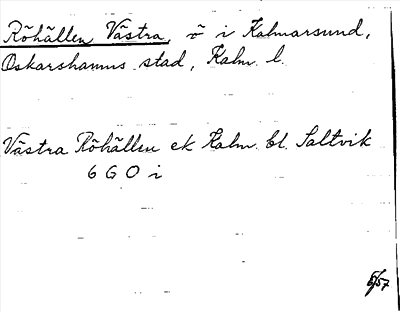 Röhällen Västra, ö i Kalmarsund,
Oskarshamns stad, Kalm. l.
Västra Röhällen ek Kalm. bl. Saltvik
6 G O i
6/57